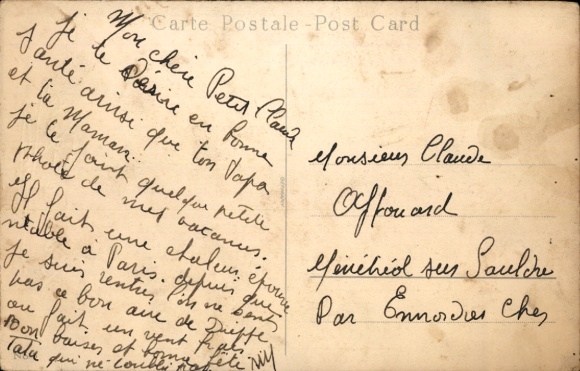 Carte Postale - Post Card
Mon chere Petit Claude
Je te Désire en bonne
santé ainsi que ton Papa
et ta Maman.
Je te joint quelque petite
photos de mes vacances.
Il fait une chaleur épouven
table à Paris. depuis que
je suis rentrée, on ne sent
pas ce bon air de Dieppe
ou fait un vent frais
Bon baises et bonne fête
Tata qui ne t'oubli pas
Monsieur Claude
Affouard
Ménétréol sur Sauldre
Par Ennordres Cher